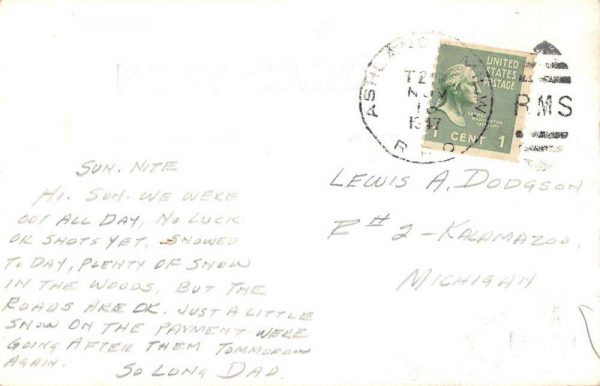 UNITED
STATES
POSTAGE
1 CENT 1
NOV
1947
R.P.O.
RMS
SUN. NITE
HI. SON. WE WERE
OUT ALL DAY, NO LUCK
OR SHOTS YET. SNOWED
TO DAY, PLENTY OF SNOW
IN THE WOODS. BUT THE
ROADS ARE OK. JUST A LITTLE
SNOW ON THE PAYMENT. WERE
GOING AFTER THEM TOMMOROW
AGAIN.
SO LONG DAD.
LEWIS A. DODGSON
R#2-KALAMAZOO.
MICHIGAN